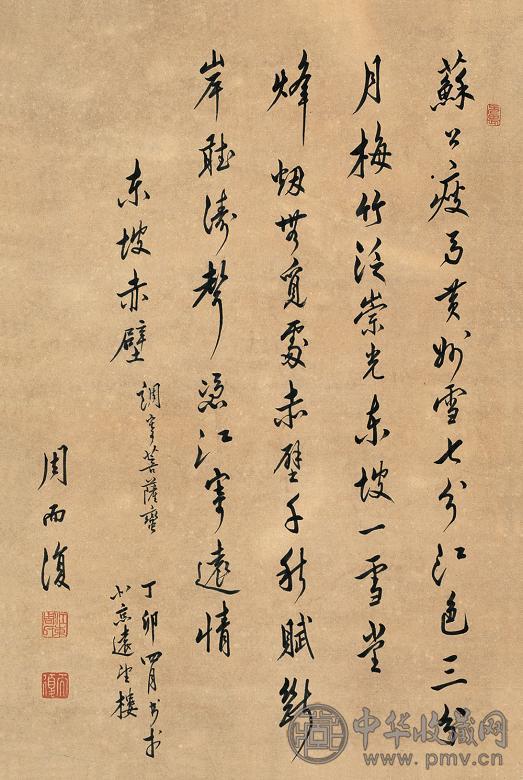 蘇公疲马黄州雪七分江色三分
月梅竹泛崇光东坡一雪堂
烽烟無覓處赤壁千秋賦斷
岸聽濤聲憑江寄遠情
东坡赤壁 調寄菩薩蠻
丁卯四月书于
北京遠望樓
周而復
中华收藏网
www.pmv.cn